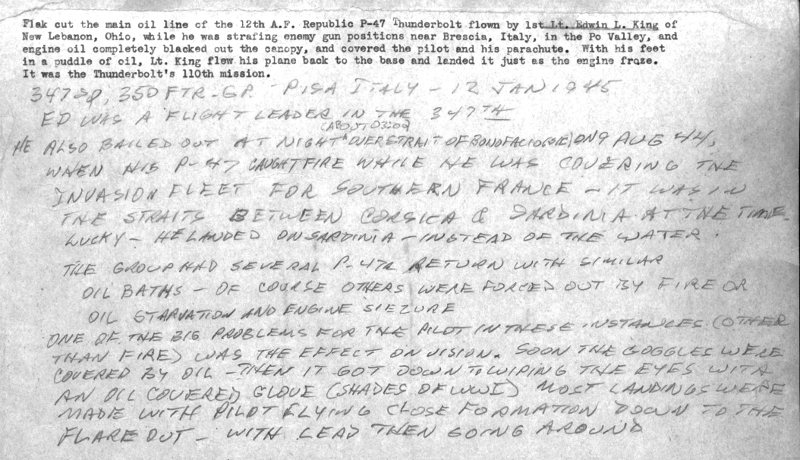 Flak cut the main oil line of the 12th A.F. Republic P-47 Thunderbolt flown by 1st Lt. Edwin L. King of
New Lebanon, Ohio, while he was strafing enemy gun positions near Brescia, Italy, in the Po Valley, and
engine oil completely blacked out the canopy, and covered the pilot and his parachute. With his feet
in a puddle of oil, Lt. King flew his plane back to the base and landed it just as the engine froze.
It was the Thunderbolt's 110th mission.
347 SQ, 350 FTR-GP - PISA ITALY - 12 JAN 1945
ED WAS A FLIGHT LEADER IN THE 347TH
(ABOUT 0320)
HE ALSO BAILED OUT AT NIGHT OVER STRAIT OF ON 9 AUG 44,
WHEN HIS P-47 CAUGHT FIRE WHILE HE WAS COVERING THE
INVASION FLEET FOR SOUTHERN FRANCE - IT WAS IN
THE STRAITS BETWEEN CORSICA & SARDINIA AT THE TIME.
LUCKY - HE LANDED ON SARDINIA - INSTEAD OF THE WATER.
THE GROUP HAD SEVERAL P-47s RETURN WITH SIMILAR
OIL BATHS - OF COURSE OTHERS WERE FORCED OUT BY FIRE OR
OIL STARVATION AND ENGINE SIEZURE
ONE OF THE BIG PROBLEMS FOR THE PILOT IN THESE INSTANCES (OTHER
THAN FIRE) WAS THE EFFECT ON VISION. SOON THE GOGGLES WERE
COVERED BY OIL - THEN IT GOT DOWN TO WIPING THE EYES WITH
AN OIL COVERED GLOVE (SHADES OF WWI) MOST LANDINGS WERE
MADE WITH PILOT FLYING CLOSE FORMATION DOWN TO THE
FLARE OUT - WITH LEAD THEN GOING AROUND